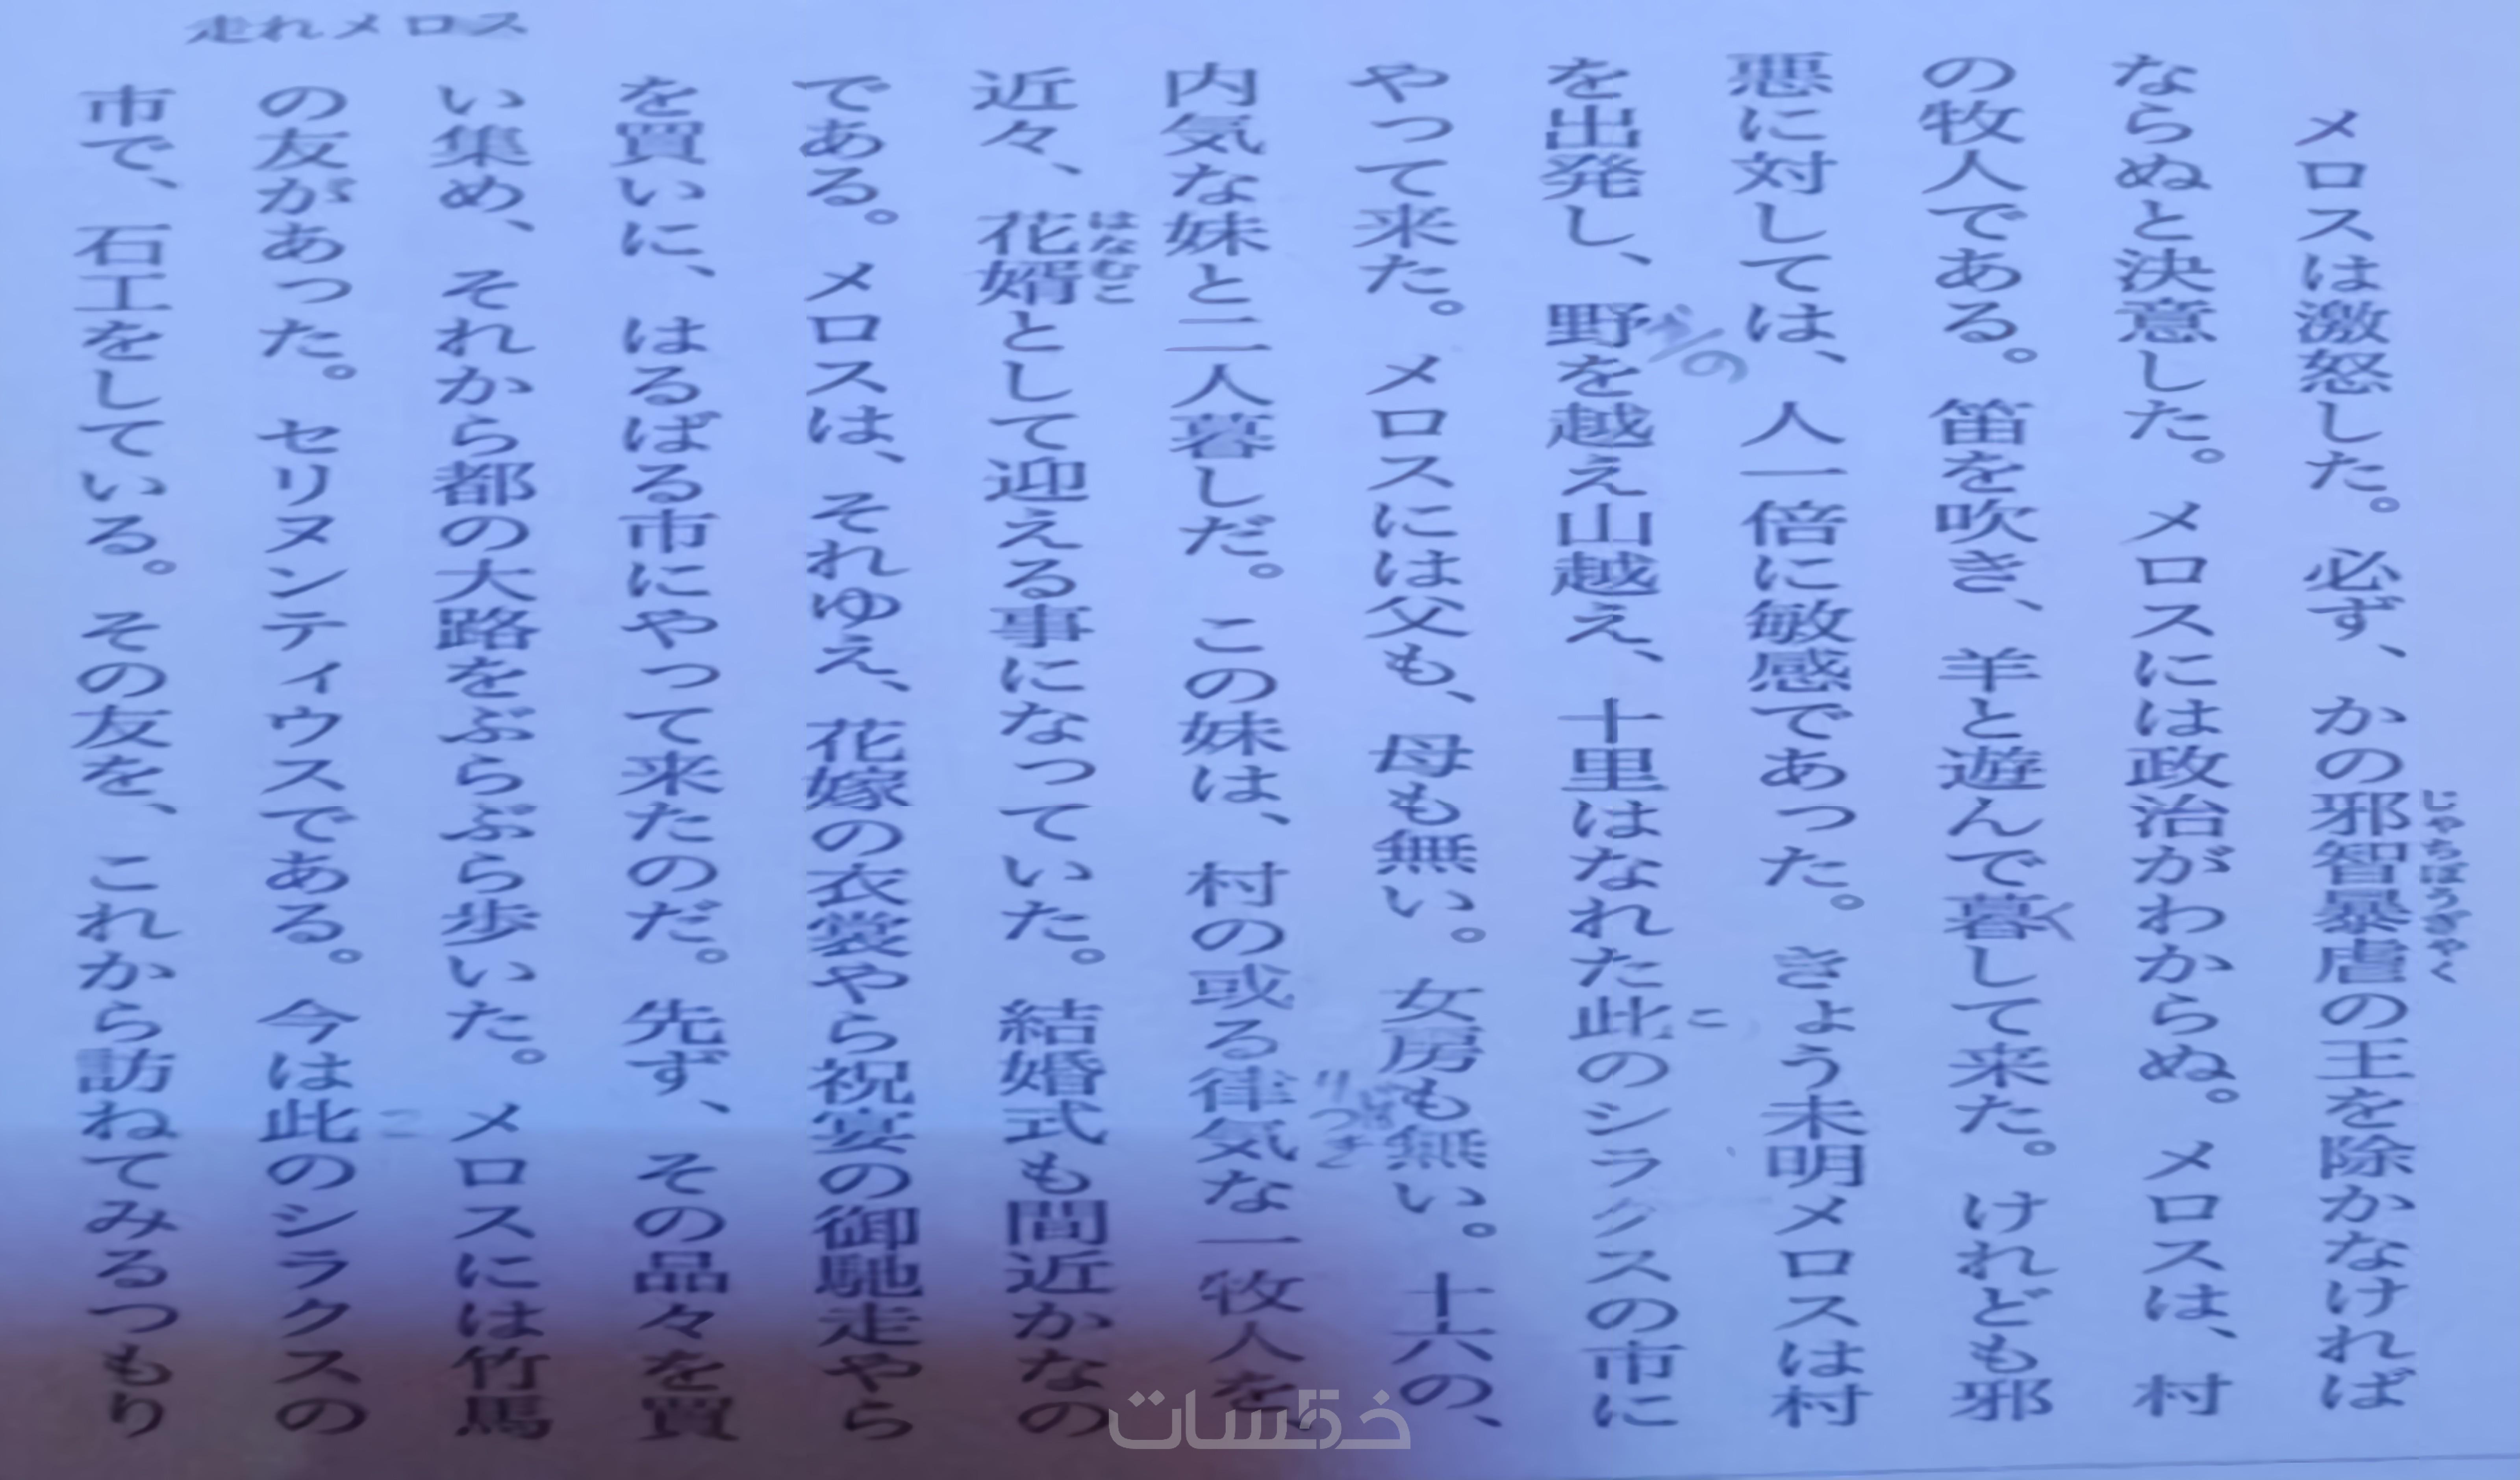 走れメロス
メロスは激怒した。必ず、かの邪智暴虐の王を除かなければ
じゃちぼうぎゃく
ならぬと決意した。メロスには政治がわからぬ。メロスは、村
の牧人である。笛を吹き、羊と遊んで暮して来た。けれども邪
く
悪に対しては、人一倍に敏感であった。きょう未明メロスは村
を出発し、野を越え山越え、十里はなれた此のシラクスの市に
の
こ
やって来た。メロスには父も、母も無い。女房も無い。十六の、
内気な妹と二人暮しだ。この妹は、村の或る律気な一牧人を、
りつぎ
近々、花婿として迎える事になっていた。結婚式も間近かなの
はなむこ
である。メロスは、それゆえ、花嫁の衣裳やら祝宴の御馳走やら
を買いに、はるばる市にやって来たのだ。先ず、その品々を買
い集め、それから都の大路をぶらぶら歩いた。メロスには竹馬
の友があった。セリヌンティウスである。今は此のシラクスの
こ
市で、石工をしている。その友を、これから訪ねてみるつもり
خمسات